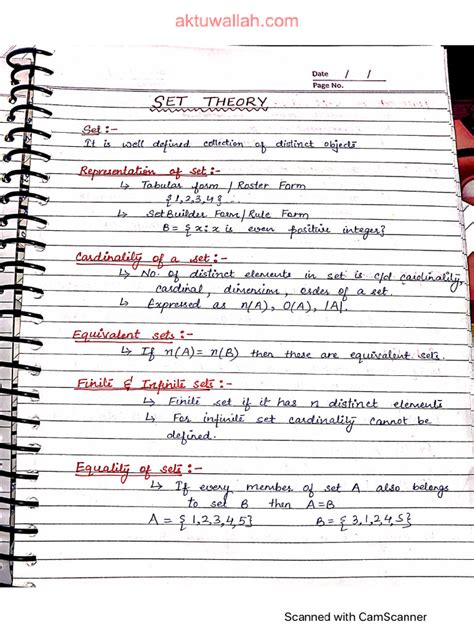 aktuwallah.com
Date / /
Page No.
SET THEORY
Set :-
It is well defined collection of distinct objects
Representation of set :-
↳ Tabular form / Roster Form
{1,2,3,4} ...
↳ Set Builder Form / Rule Form
B = {x : x is even positive integer}
Cardinality of a set :-
↳ No. of distinct elements in set is c/d cardinality,
cardinal, dimension, order of a set.
↳ Expressed as n(A), O(A), |A|.
Equivalent sets :-
↳ If n(A) = n(B) then these are equivalent sets.
Finite & Infinite sets :-
↳ Finite set if it has n distinct elements
↳ For infinite set cardinality cannot be
defined.
Equality of sets :-
↳ If every member of set A also belongs
to set B then A=B
A = {1,2,3,4,5} B = {3,1,2,4,5}
Scanned with CamScanner